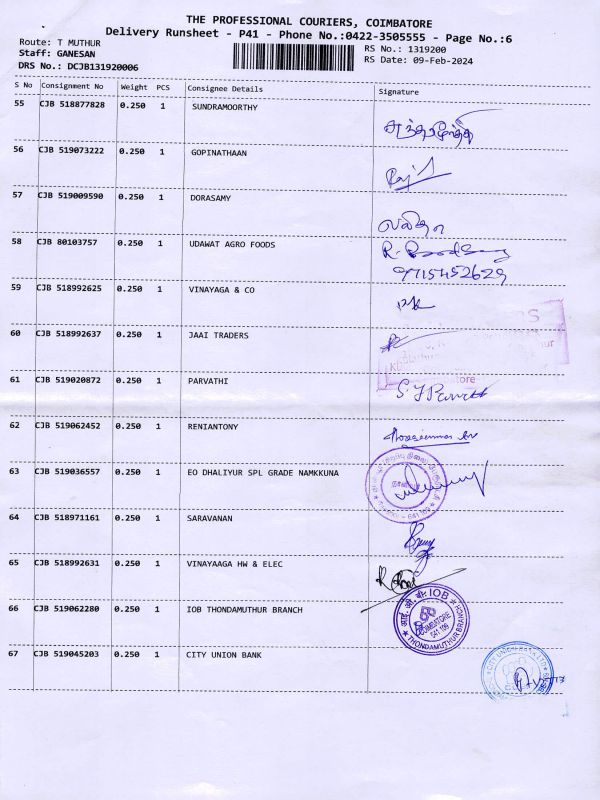 THE PROFESSIONAL COURIERS, COIMBATORE
Delivery Runsheet - P41 - Phone No.:0422-3505555 - Page No.:6
Route: T MUTHUR
Staff: GANESAN
DRS No.: DCJB131920006
RS No.: 1319200
RS Date: 09-Feb-2024
S No Consignment No Weight PCS Consignee Details Signature
55 CJB 518877828 0.250 1 SUNDRAMOORTHY
56 CJB 519073222 0.250 1 GOPINATHAAN
57 CJB 519009590 0.250 1 DORASAMY
58 CJB 80103757 0.250 1 UDAWAT AGRO FOODS
9715452629
59 CJB 518992625 0.250 1 VINAYAGA & CO
60 CJB 518992637 0.250 1 JAAI TRADERS
61 CJB 519020872 0.250 1 PARVATHI
62 CJB 519062452 0.250 1 RENIANTONY
63 CJB 519036557 0.250 1 EO DHALIYUR SPL GRADE NAMKKUNA
641 109
64 CJB 518971161 0.250 1 SARAVANAN
65 CJB 518992631 0.250 1 VINAYAAGA HW & ELEC
66 CJB 519062280 0.250 1 IOB THONDAMUTHUR BRANCH
IOB
COIMBATORE
641 109
THONDAMUTHUR BRANCH
67 CJB 519045203 0.250 1 CITY UNION BANK
CITY UNION BANK LTD